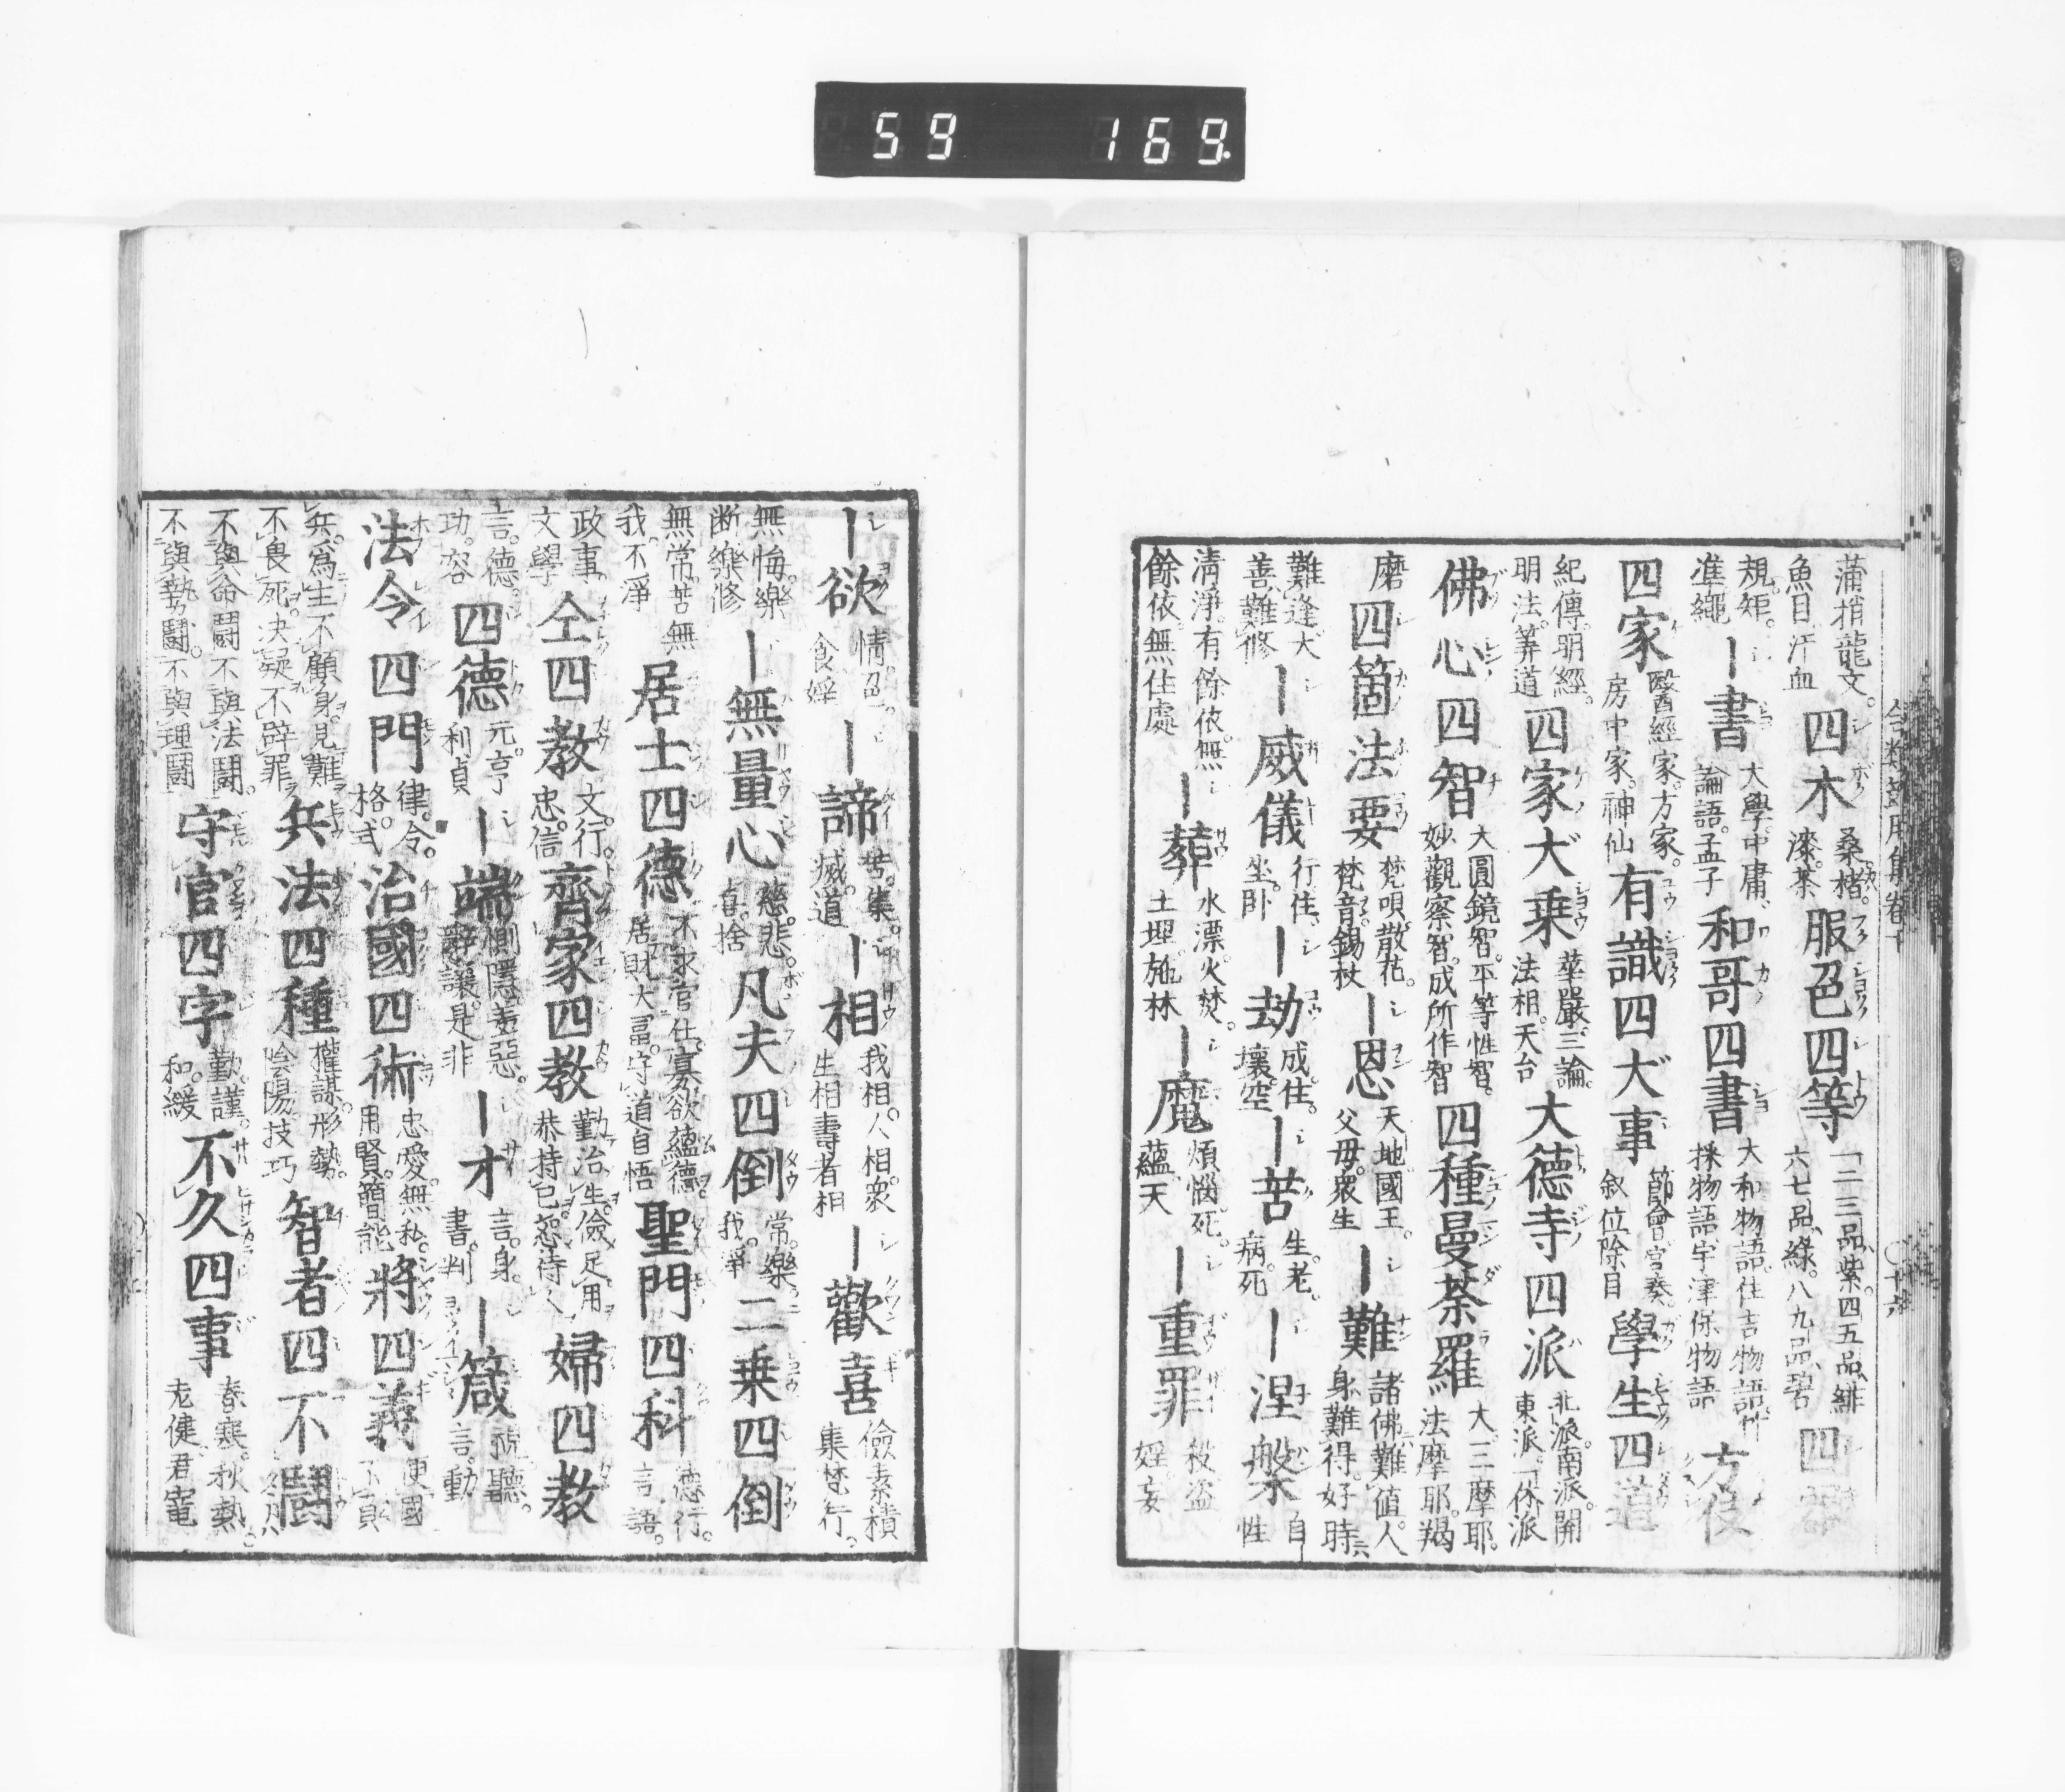 59 169
蒲捎龍文。魚目汗血 四木 桑楮。漆茶 服色四等 一二三品紫。四五品緋六七品綠。八九品碧 四
規。矩。準繩 ー書 大學中庸論語。孟子 和哥四書 大和物語。住吉物語。採物語宇津保物語
四家 醫經家。方家。房中家。神仙 有識四大事 節會官奏。叙位除目 學生四道
紀傳。明經。明法。筭道 四家大乗 華嚴三論。法相。天台 大德寺四派 北派。南派。開東派。
佛心四智 大圓鏡智。平等性智。妙觀察智。成所作智 四種曼荼羅 大。三摩耶。法摩耶。羯
磨 四箇法要 梵唄散花。梵音錫杖 ー恩 天地國王。父母。衆生 ー難 諸佛難值。人身難得。好時
難逢大善難修 ー威儀 行住坐。卧 ー劫 成。住。壞。空 ー苦 生。老。病。死 ー涅槃 自性
清淨。有餘依。無餘依。無住處 ー葬 水漂。火焚。土埋。施林 ー魔 煩惱。死。蘊天 ー重罪 殺盗婬。妄
ー欲 情。色。食婬 ー諦 苦。集。滅。道 ー相 我相。人相。衆生相壽者相 ー歡喜 儉素積集梵行。
無悔。樂断樂修 ー無量心 慈。悲。喜。捨 凡夫四倒 常。樂我。淨 二乗四倒
無常。苦無我。不淨 居士四德 不求官仕。寡欲蘊德。居財大富。守道自悟 聖門四科 德行。言語。
政事。文學 仝四教 文。行。忠。信 齊家四教 勤治生。儉足用恭持己恕待人 婦四教
言。德。功。容 四德 元。亨。利貞 ー端 惻隱羞惡。辭讓。是非 ー才 言。身。書。判 ー箴 視聽。言。動
法令四門 律。令。格。式 治國四術 忠愛。無私。用賢。簡能 將四義
兵。爲生不顧身。見難不畏死。決疑不辟罪 兵法四種 權謀。形勢。陰陽技巧 智者四不鬪
不與命鬪不與法鬪。不與勢鬪。不與理鬪 守官四字 勤。謹。和。緩 不久四事 春寒。秋熱。老健。君寵